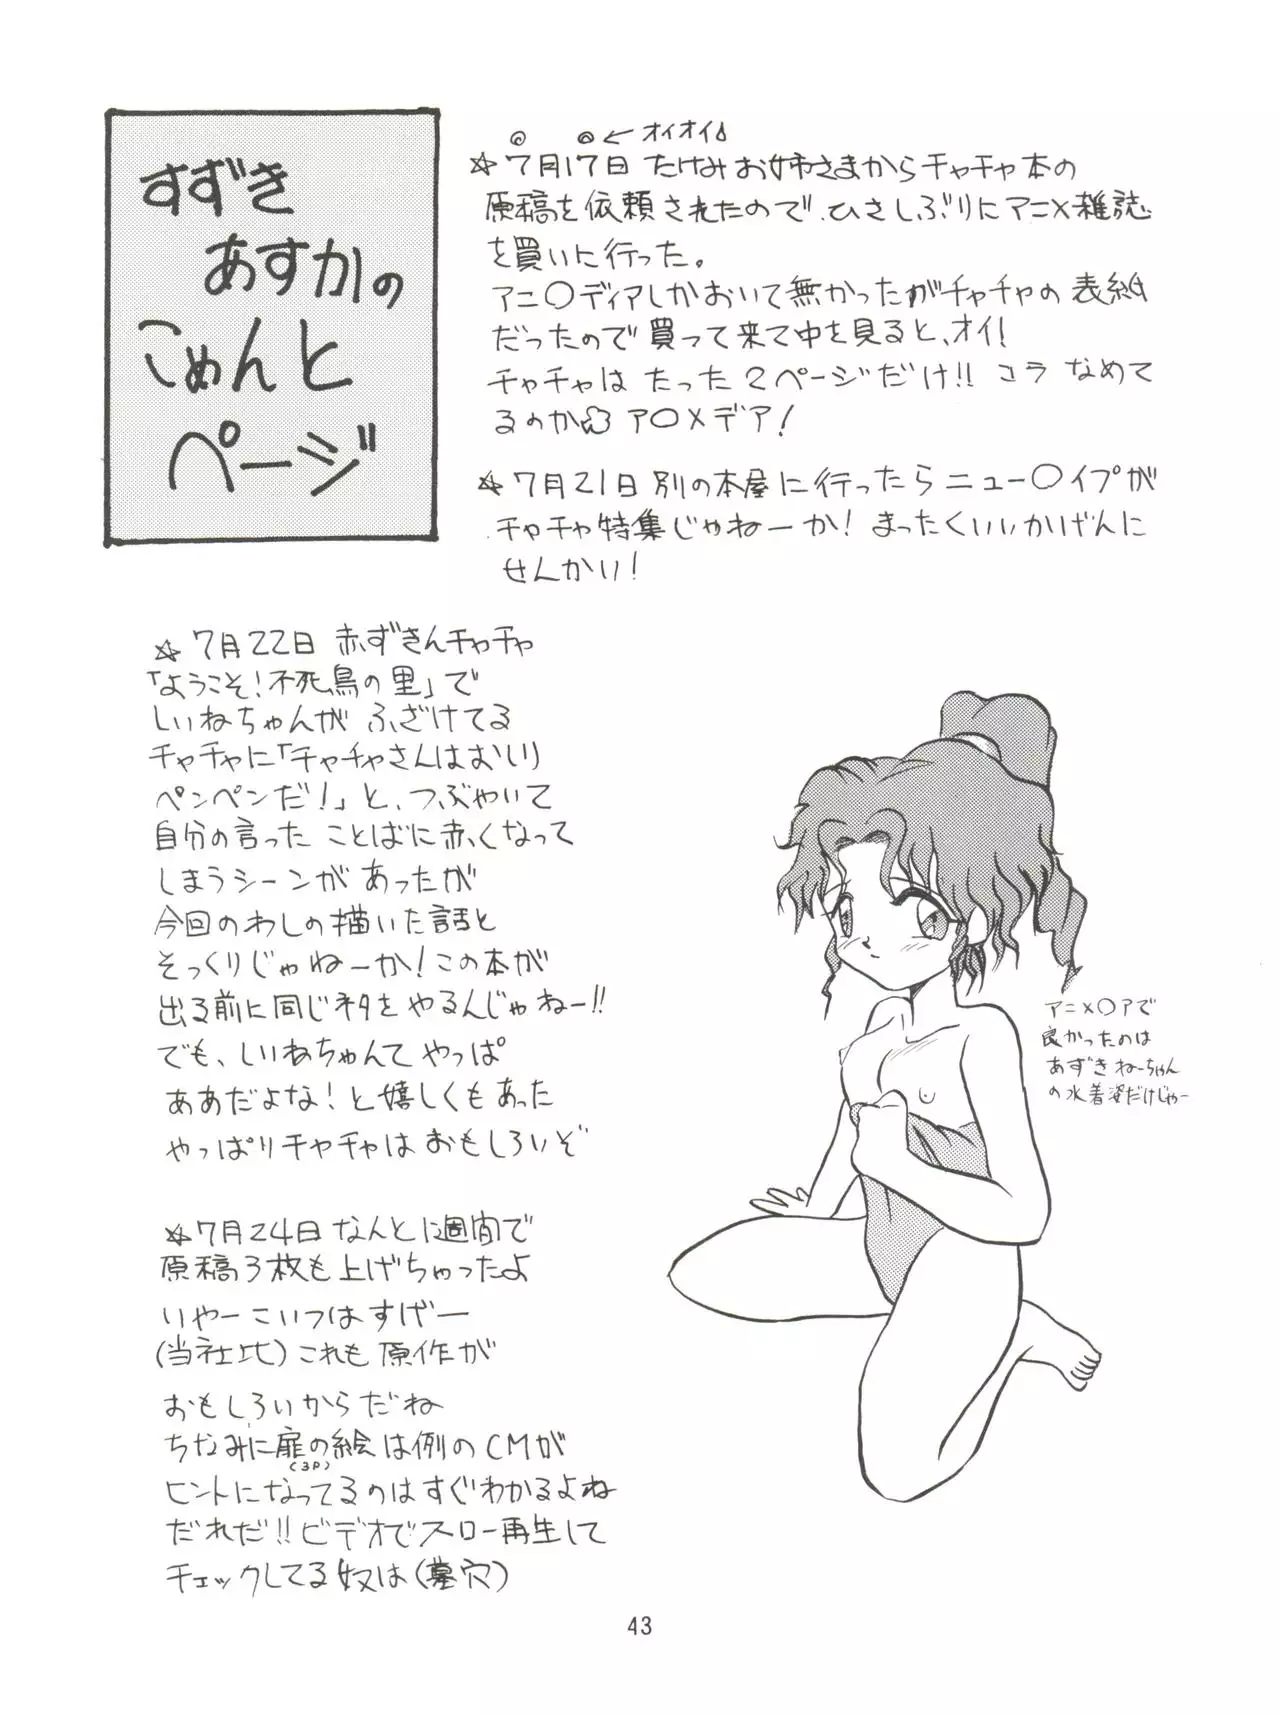 すずき
あすかの
こめんと
ページ
←オイオイ
☆7月17日 たけみお姉さまからチャチャ本の
原稿を依頼されたので、ひさしぶりにアニメ雑誌
を買いに行った。
アニ〇ディアしかおいて無かったがチャチャの表紙
だったので買って来て中を見ると、オイ!
チャチャはたった2ページだけ!! コラ なめて
るのか ア〇メデア!
☆7月21日 別の本屋に行ったらニュー〇イプが
チャチャ特集じゃねーか! まったくいいかげんに
せんかい!
☆7月22日 赤ずきんチャチャ
「ようこそ!不死鳥の里」で
しいねちゃんが ふざけてる
チャチャに「チャチャさんはおしり
ペンペンだ!」と、つぶやいて
自分の言った ことばに赤くなって
しまうシーンが あったが
今回のわしの描いた話と
そっくりじゃねーか!この本が
出る前に同じネタをやるんじゃねー!!
でも、しいねちゃんて やっぱ
ああだよな!と嬉しくもあった
やっぱりチャチャはおもしろいぞ
アニメ〇アで
良かったのは
あずきねーちゃん
の水着姿だけじゃー
☆7月24日 なんと1週間で
原稿3枚も上げちゃったよ
いやーこいつはすげー
(当社比)これも 原作が
おもしろいからだね
ちなみに扉の絵は例のCMが
(3P)
ヒントになってるのはすぐわかるよね
だれだ!!ビデオでスロー再生して
チェックしてる奴は(墓穴)
43